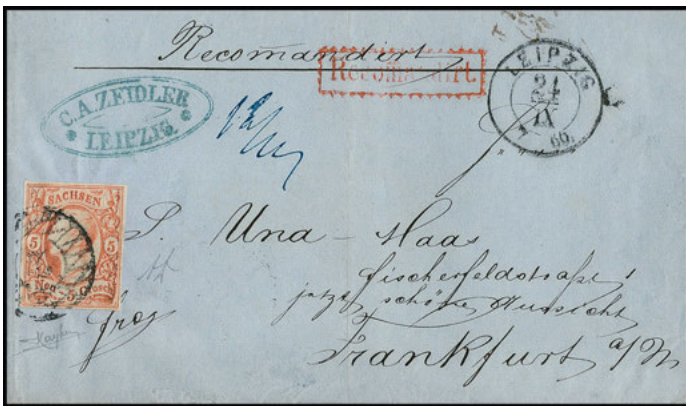 Recomandirt
Recomandirt.
LEIPZIG
21
66
C.A. ZEIDLER
LEIPZIG.
SACHSEN
5 5
P. Una - Haas
Fischerfeldstraße 1
jetzt schöne Aussicht
Frankfurt a/M